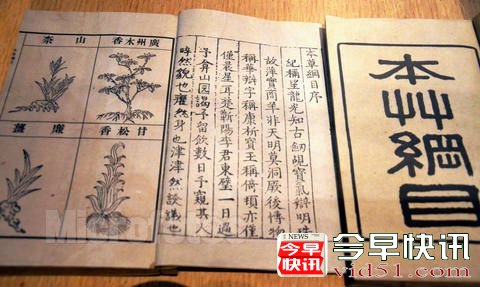 本艸綱目
本草綱目序
紀稱望龍光知古劒覘寶氣辯明珠
故萍實商羊非天明莫洞厥後博物
稱華辯字稱康析寶玉稱倚頓亦僅
僅晨星耳楚蘄陽李君東璧一日過
予弇山園謁予留飲數日予窺其人
睟然貌也癯然身也津津然譚議也
廣州木香
山柰
甘松香
廉薑
NEWS
今早
快讯
今早快讯
vid51.com